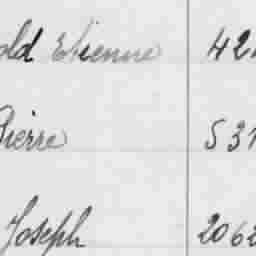 old Etienne 42
Pierre 531
Joseph 2062